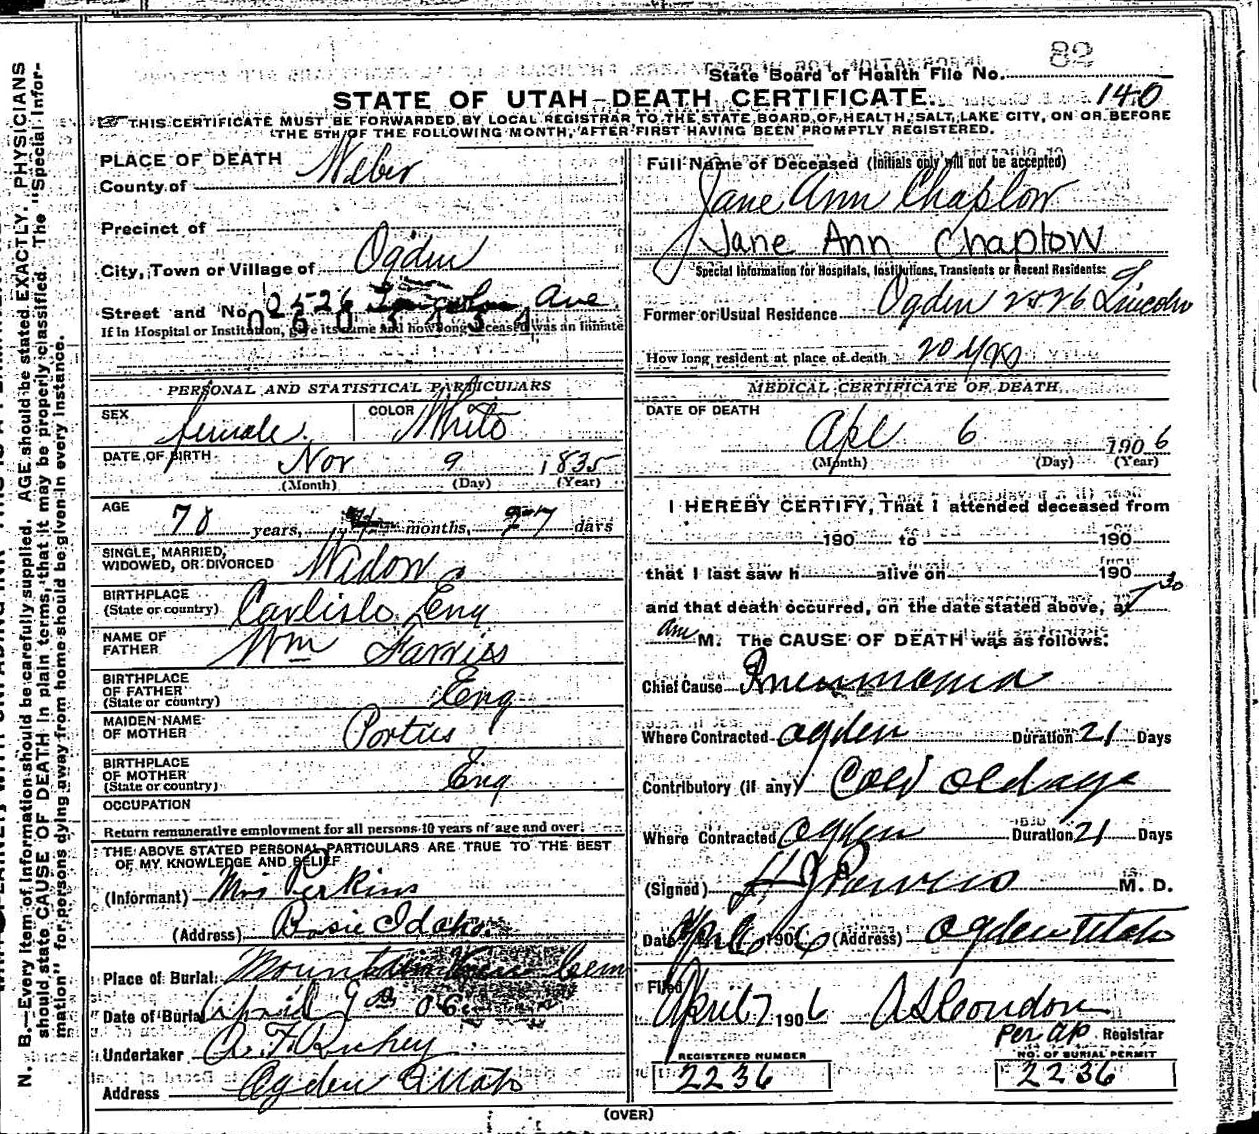 82
State Board of Health File No.
STATE OF UTAH-DEATH CERTIFICATE. 140
THIS CERTIFICATE MUST BE FORWARDED BY LOCAL REGISTRAR TO THE STATE BOARD OF HEALTH, SALT LAKE CITY, ON OR BEFORE
THE 5TH OF THE FOLLOWING MONTH, AFTER FIRST HAVING BEEN PROMPTLY REGISTERED.
PLACE OF DEATH
County of Weber
Precinct of
City, Town or Village of Ogden
Street and No. 2526 Lincoln Ave
0 6 0 3 4 3 4
If in Hospital or Institution, give its name and how long deceased was an inmate
Full Name of Deceased (Initials only will not be accepted)
Jane Ann Chaplow
Jane Ann Chaplow
Special Information for Hospitals, Institutions, Transients or Recent Residents:
Former or Usual Residence Ogden 2526 Lincoln
How long resident at place of death 20 yrs
PERSONAL AND STATISTICAL PARTICULARS
SEX female COLOR White
DATE OF BIRTH Nov 9 1835
(Month) (Day) (Year)
AGE 70 years, months, 27 days
SINGLE, MARRIED,
WIDOWED, OR DIVORCED Widow
BIRTHPLACE
(State or country) Carlisle Eng
NAME OF
FATHER Wm
BIRTHPLACE
OF FATHER
(State or country) Eng
MAIDEN NAME
OF MOTHER Portus
BIRTHPLACE
OF MOTHER
(State or country) Eng
OCCUPATION
Return remunerative employment for all persons 10 years of age and over.
THE ABOVE STATED PERSONAL PARTICULARS ARE TRUE TO THE BEST
OF MY KNOWLEDGE AND BELIEF
(Informant) Mrs Perkins
(Address) Bosie Idaho
Place of Burial Mountain View Cem
Date of Burial April 9 06
Undertaker
Address Ogden Utah
MEDICAL CERTIFICATE OF DEATH
DATE OF DEATH
Apl 6 1906
(Month) (Day) (Year)
I HEREBY CERTIFY, That I attended deceased from
190 to 190
that I last saw h alive on 190
and that death occurred, on the date stated above, at 7 30
am M. The CAUSE OF DEATH was as follows:
Chief Cause Pneumonia
Where Contracted Ogden Duration 21 Days
Contributory (if any) Cold old age
Where Contracted Ogden Duration 21 Days
(Signed) H J Powers M. D.
Date April 6 1906 (Address) Ogden Utah
Filed
April 7 1906 A S Condon
Per AP Registrar
REGISTERED NUMBER
2236
NO. OF BURIAL PERMIT
2236
(OVER)
N. B.—Every item of information should be carefully supplied. AGE should be stated EXACTLY. PHYSICIANS
should state CAUSE OF DEATH in plain terms, that it may be properly classified. The "Special Infor-
mation" for persons dying away from home should be given in every instance.